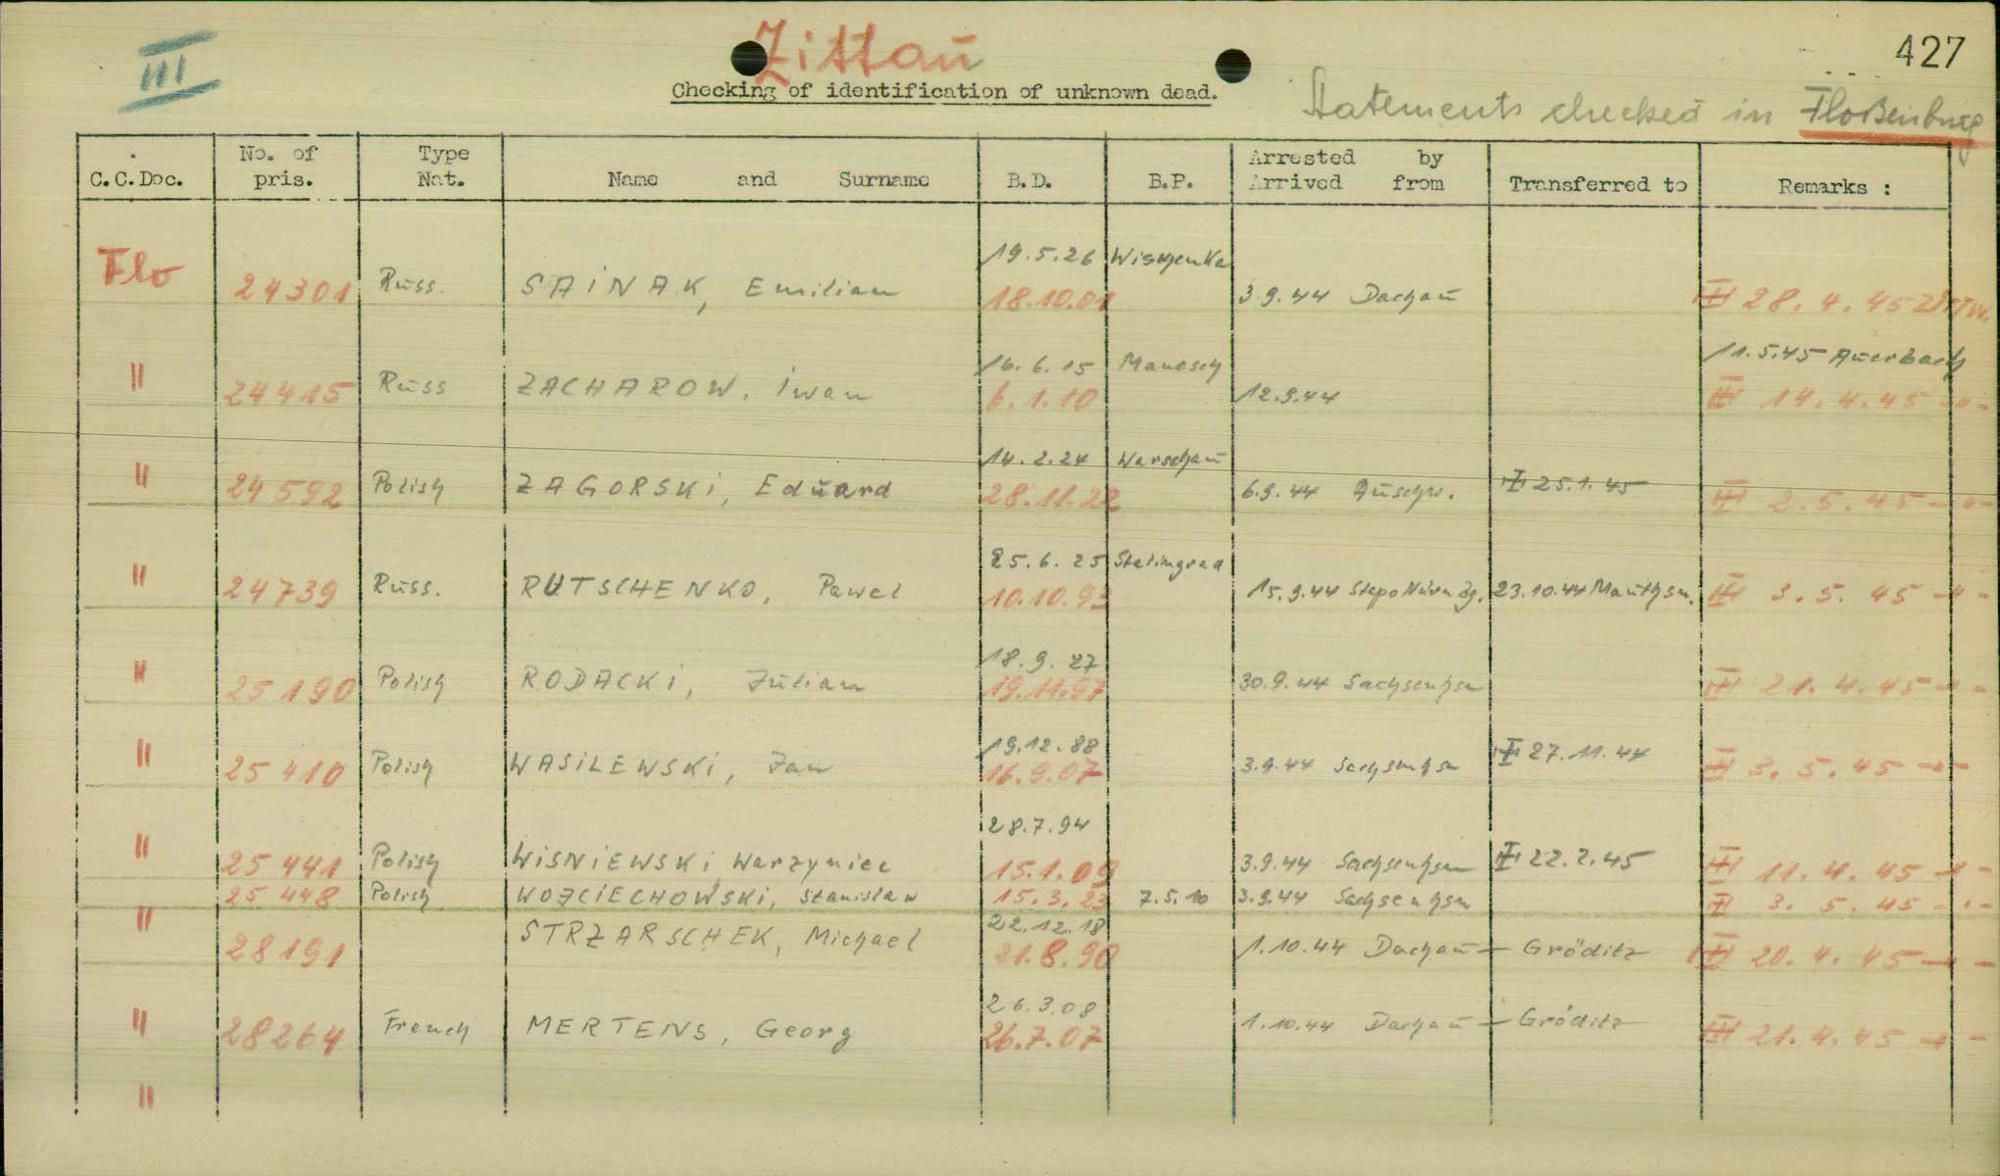 III
Zittau
427
Checking of identification of unknown dead.
Statements checked in Floßenbürg
C.C.Doc. No. of pris. Type Nat. Name and Surname B.D. B.P. Arrested by Arrived from Transferred to Remarks :
19.5.26 Wiszenka
Flo 24301 Russ. SAiNAK, Emilian 18.10.01 3.9.44 Dachau 28.4.45 Zittau
16.6.15 Manosch 11.5.45 Auerbach
" 24415 Russ ZACHAROW, iwan 6.1.10 12.9.44 14.4.45 -"-
14.2.24 Warschau
" 24592 Polish ZAGORSKi, Eduard 28.11.22 6.9.44 Auschw. 25.1.45 2.5.45 -"-
25.6.25 Stalingrad
" 24739 Russ. RUTSCHENKO, Pawel 10.10.93 15.9.44 Stapo Nürnbg. 23.10.44 Mauthsn. 3.5.45 -"-
18.9.27
" 25190 Polish RODACKi, Julian 19.11.97 30.9.44 Sachsenhsn 21.4.45 -"-
19.12.88
" 25410 Polish WASiLEWSKi, Jan 16.9.07 3.9.44 Sachsenhsn 27.11.44 3.5.45 -"-
28.7.94
" 25441 Polish WiSNiEWSKi, Warzyniec 15.1.09 3.9.44 Sachsenhsn 22.2.45 11.4.45 -"-
25448 Polish WOJCiECHOWSKi, Stanislaw 15.3.23 7.5.10 3.9.44 Sachsenhsn 3.5.45 -"-
22.12.18
" 28191 STRZARSCHEK, Michael 21.8.90 1.10.44 Dachau – Gröditz 20.4.45 -"-
26.3.08
" 28264 French MERTENS, Georg 26.7.07 1.10.44 Dachau – Gröditz 21.4.45 -"-
"